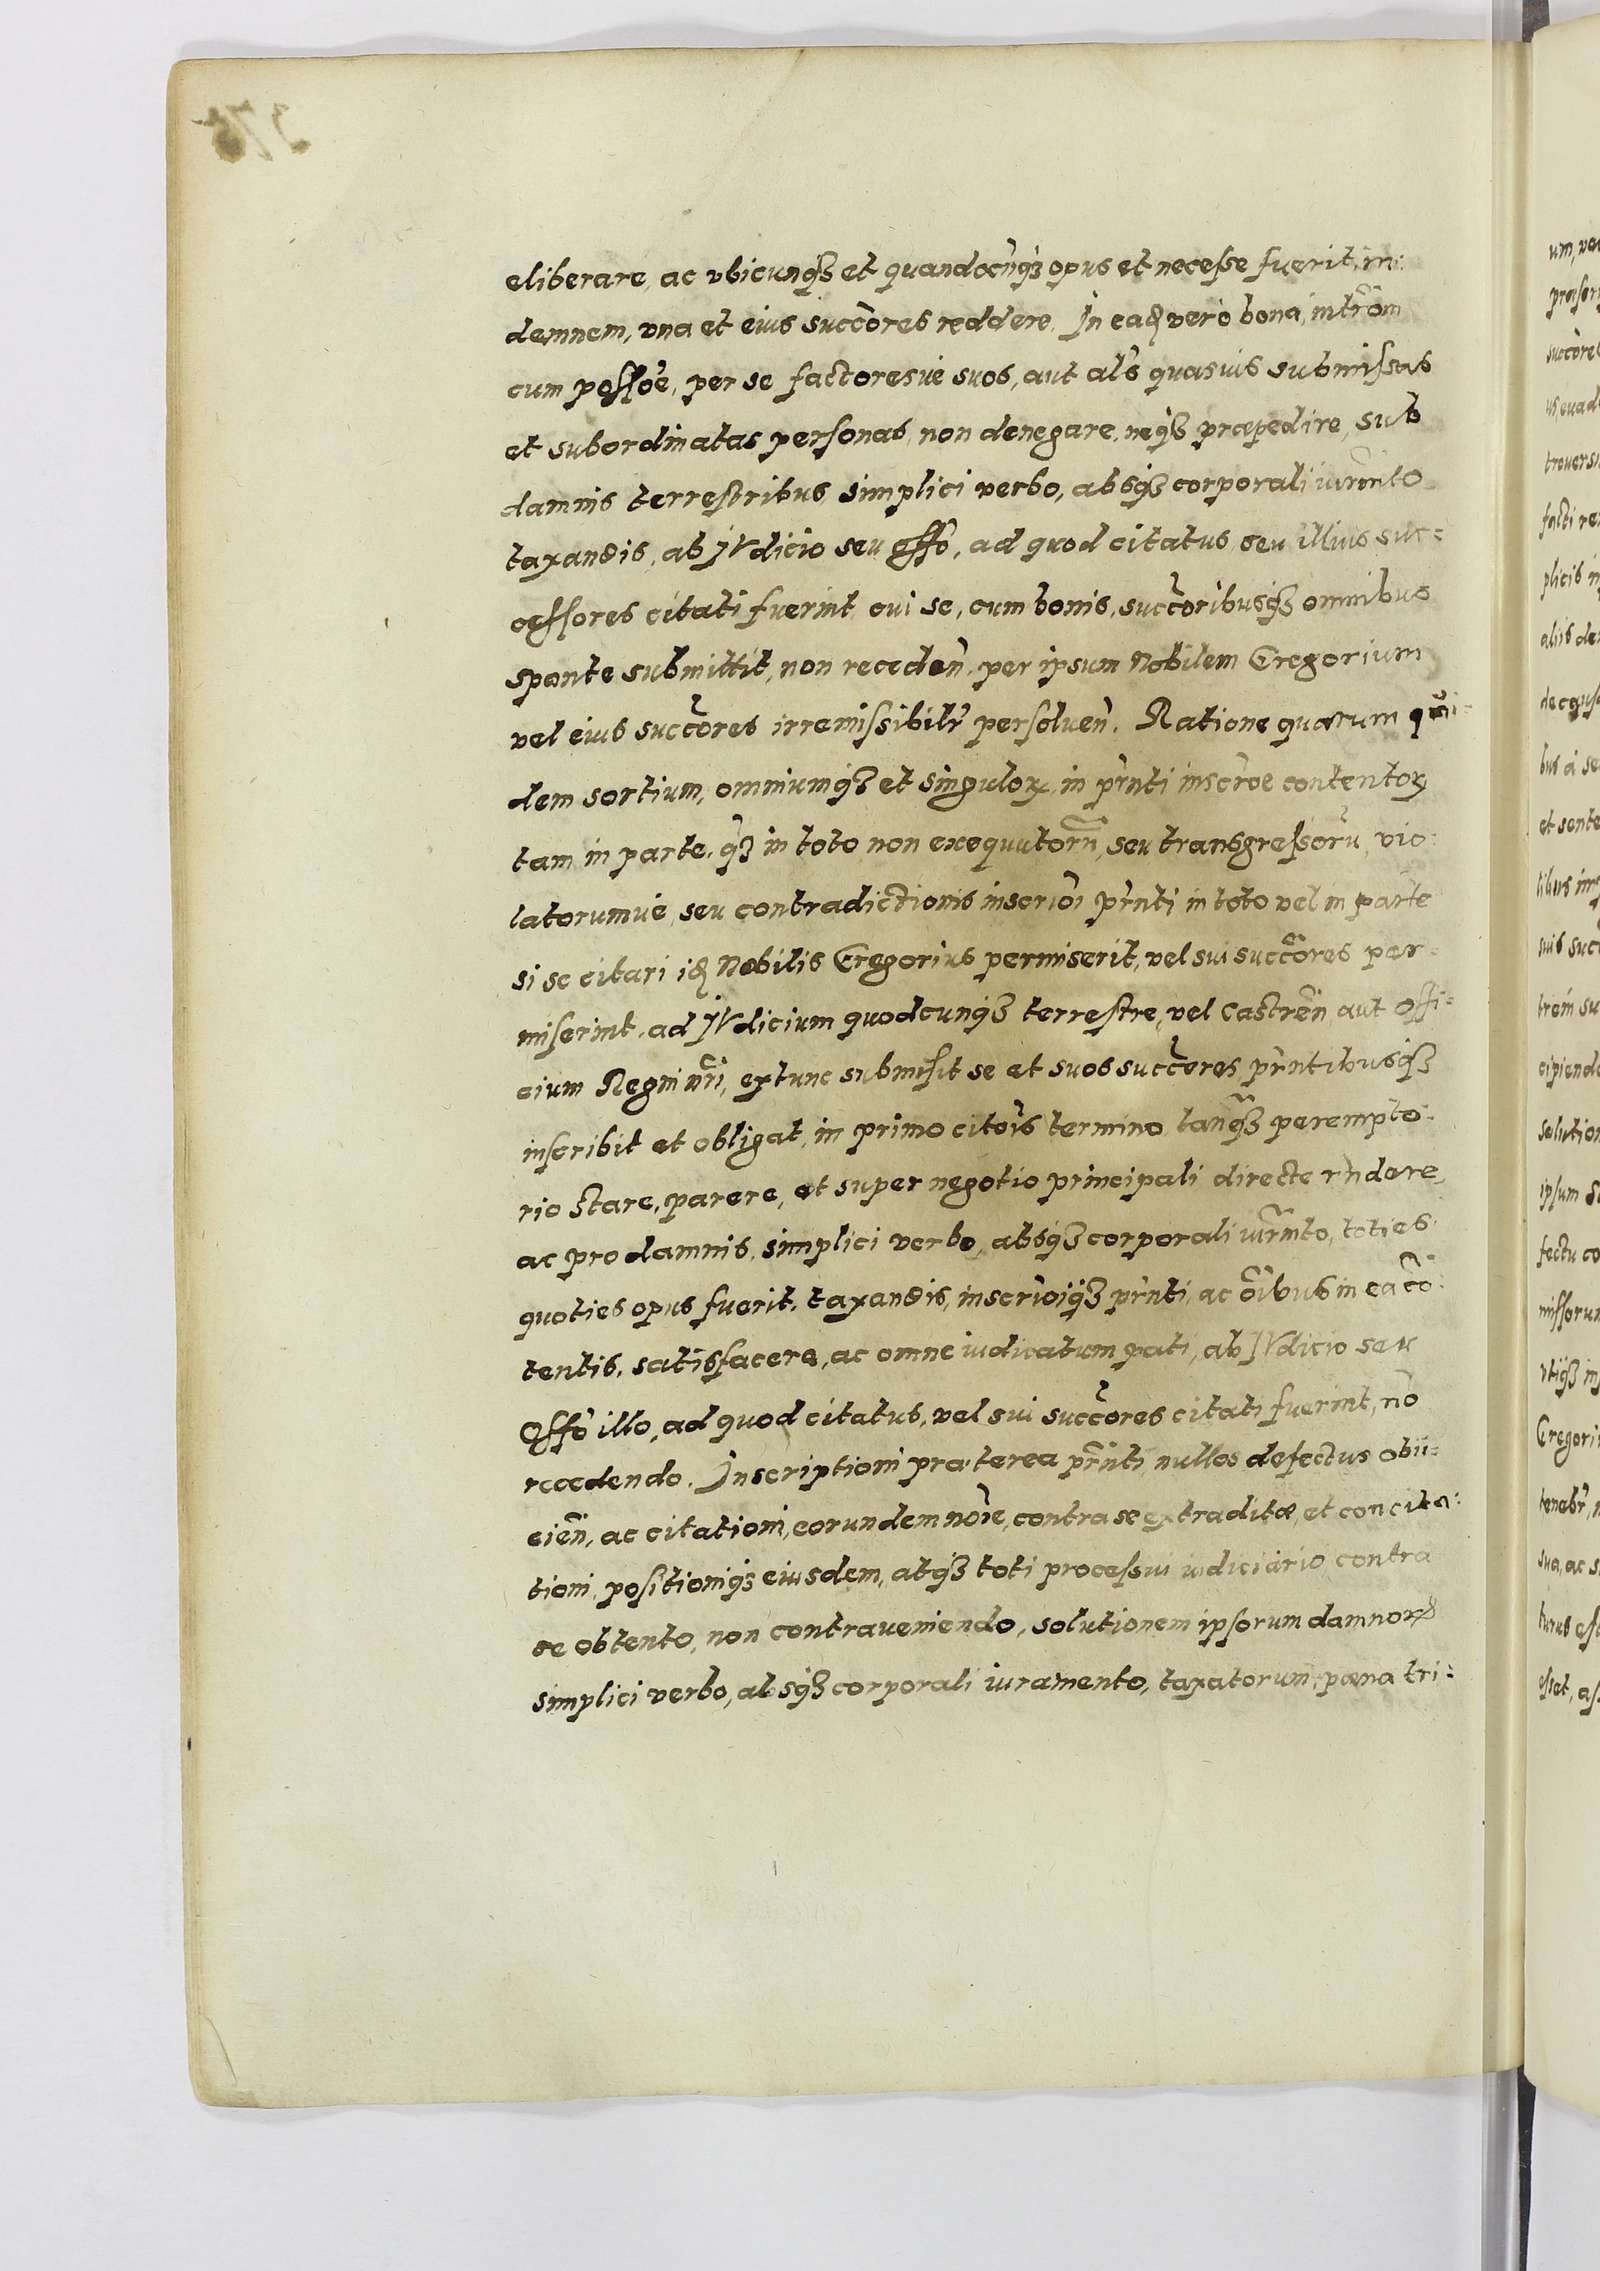 eliberare, ac vbicunqꝫ et quandocũqꝫ opus et necesse fuerit, in:
demnem, vna et eius succōres reddere. In eaꝺ verò bona, intrōm
cum possōe, per se factoresue suos, aut als̄ quasuis submissas
et subordinatas personas, non denegare, neqꝫ præpedire, sub
damnis terrestribus, simplici verbo, absqꝫ corporali iurm̄to
taxandis, ab JVdicio seu offō, ad quod citatus, seu illius suc-
cessores citati fuerint, cui se, cum bonis, succōribusqꝫ omnibus
sponte submittit, non receden̄, per ipsum Nobilem Gregorium
vel eius succōres irremissibilr̄ persoluen̄. Ratione quarum qui-
dem sortium, omniumqꝫ et singuloꝝ in pr̄nti inscrōe contentoꝝ
tam in parte, qꝫ in toto non exequutorū, seu transgressorū, vio:
latorumue, seu contradictionis inscriōi pr̄nti in toto vel in parte
si se citari iꝺ Nobilis Gregorius permiserit, vel sui succōres per-
miserint, ad JVdicium quodcunqꝫ terrestre, vel Castren̄ aut offi-
cium Regni nr̄i, extunc submisit se et suos succōres, pr̄ntibusqꝫ
inscribit et obligat, in primo citōis termino, tanqꝫ perempto:
rio stare, parere, et super negotio principali directe rn̄dere,
ac pro damnis, simplici verbo, absqꝫ corporali iurm̄to, toties
quoties opus fuerit, taxandis, inscriōiqꝫ pr̄nti, ac ōibus in ea cō:
tentis, satisfacere, ac omne iudicatum pati, ab JVdicio seu
Offō illo, ad quod citatus, vel sui succōres citati fuerint, nō
recedendo. Inscriptioni præterea pr̄nti, nullos defectus obii-
cien̄, ac citationi, eorundem nōie, contra se extraditæ, et concita:
tioni, positioniqꝫ eiusdem, atqꝫ toti processui iudiciario contra
se obtento, non contraueniendo, solutionem ipsorum damnoꝝ
simplici verbo, absqꝫ corporali iuramento, taxatorum, pœna tri-